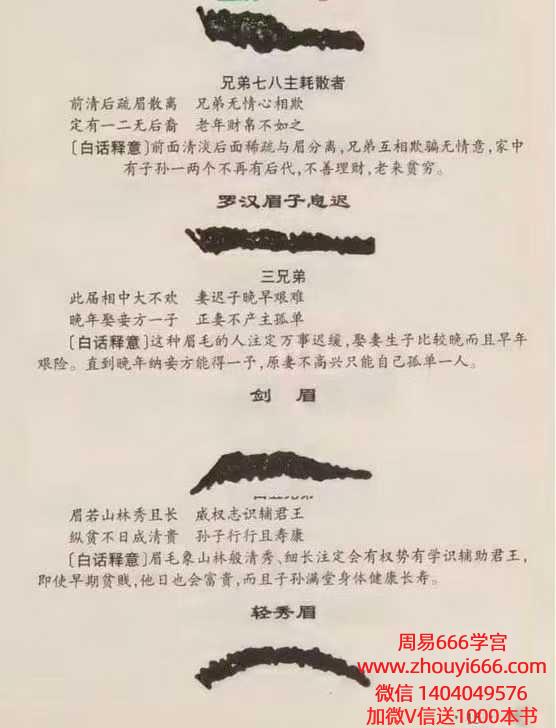 兄弟七八主耗散者
前清后疏眉散离　兄弟无情心相欺
定有一二无后裔　老年财帛不如之
〔白话释意〕前面清淡后面稀疏与眉分离,兄弟互相欺骗无情意,家中
有子孙一两个不再有后代,不善理财,老来贫穷。
罗汉眉子息迟
三兄弟
此届相中大不欢　妻迟子晚早艰难
晚年娶妾方一子　正妻不产主孤单
〔白话释意〕这种眉毛的人注定万事迟缓,娶妻生子比较晚而且早年
艰险。直到晚年纳妾方能得一子,原妻不高兴只能自己孤单一人。
剑　眉
眉若山林秀且长　威权志识辅君王
纵贫不日成清贵　孙子行行且寿康
〔白话释意〕眉毛象山林般清秀、细长注定会有权势有学识辅助君王,
即使早期贫贱,他日也会富贵,而且子孙满堂身体健康长寿。
轻秀眉
周易666学宫
www.zhouyi666.com
微信 1404049576
加微V信送1000本书